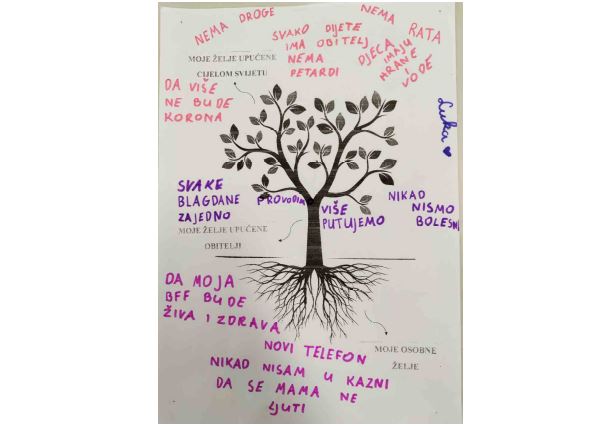 NEMA DROGE
NEMA
RATA
SVAKO DIJETE
IMA OBITELJ
NEMA
PETARDI
DJECA
IMAJU
HRANE I
VODE
MOJE ŽELJE UPUĆENE
CIJELOM SVIJETU
DA VIŠE
NE BUDE
KORONA
Luka
SVAKE
BLAGDANE PROVODIM
ZAJEDNO
VIŠE
PUTUJEMO
NIKAD
NISMO
BOLESNI
MOJE ŽELJE UPUĆENE
OBITELJI
DA MOJA
BFF BUDE
ŽIVA I ZDRAVA
MOJE OSOBNE
ŽELJE
NOVI TELEFON
NIKAD NISAM U KAZNI
DA SE MAMA NE
LJUTI